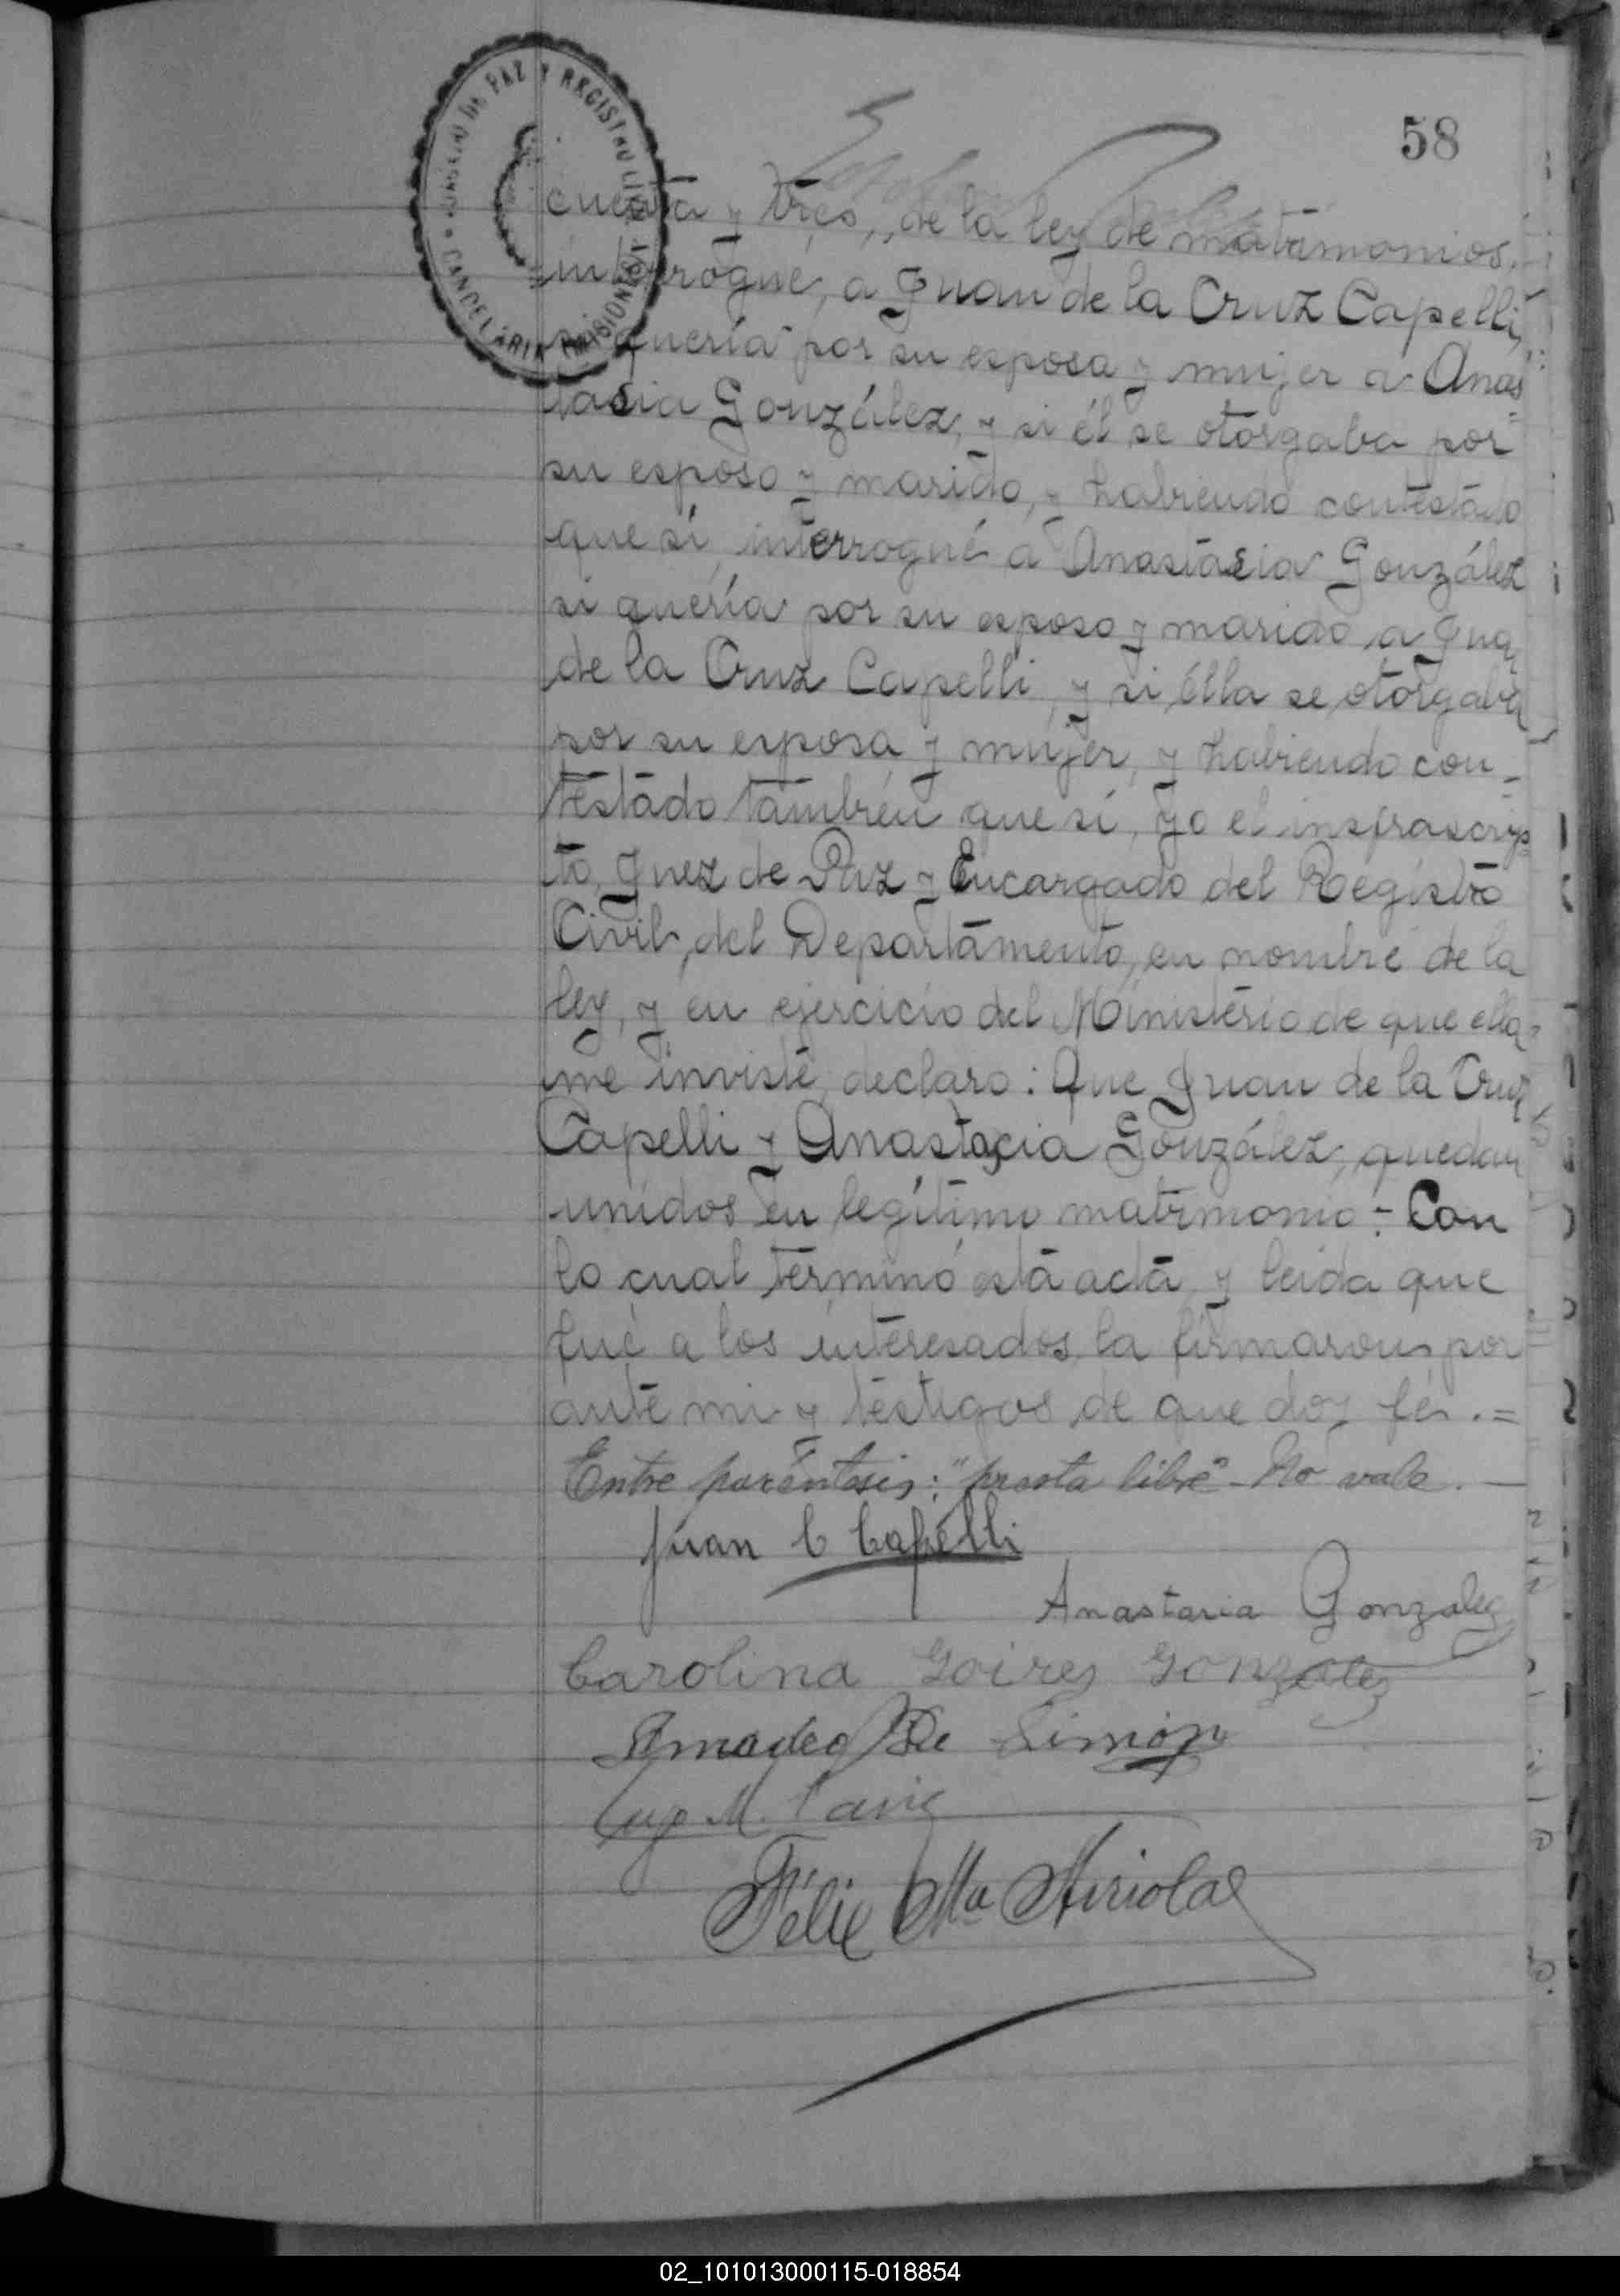 58
JUZGADO DE PAZ Y REGISTRO CIVIL
CANDELARIA MISIONES
cuenta y tres, de la ley de matrimonios.
interrogué, a Juan de la Cruz Capelli,
si quería por su esposa y mujer a Anas
tasia González, y si él se otorgaba por
su esposo y marido, y habiendo contestado
que sí, interrogué a Anastasia González
si quería por su esposo y marido a Juan
de la Cruz Capelli, y si élla se otorgaba
por su esposa y mujer, y habiendo con-
testado también que sí, yo el insfrascrip
to, Juez de Paz y Encargado del Registro
Civil, del Departamento, en nombre de la
ley, y en ejercicio del Ministerio de que ella
me inviste, declaro: Que Juan de la Cruz
Capelli y Anastacia González, quedan
unidos en legítimo matrimonio.- Con
lo cual terminó esta acta, y leida que
fué a los interesados, la firmaron, por
ante mi y testigos de que doy fé. =
Entre paréntesis: "presta libre" - No vale. —
Juan C Capelli
Anastasia Gonzalez
Carolina Goires Gonzalez
Amadeo De Simón
M.
Félix Ma
02_101013000115-018854